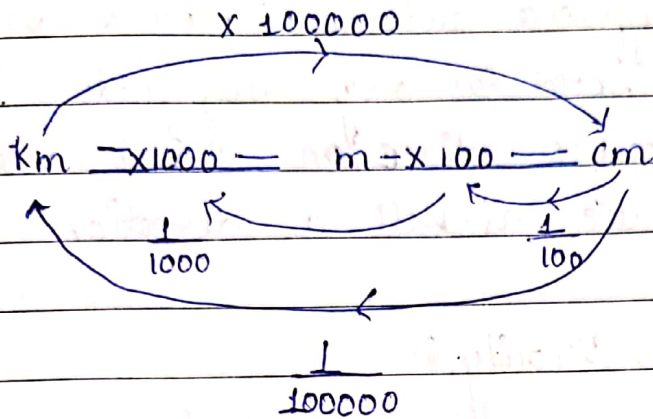 x 100000
Km =x1000= m-x100 = cm
1/1000 1/100
1/100000